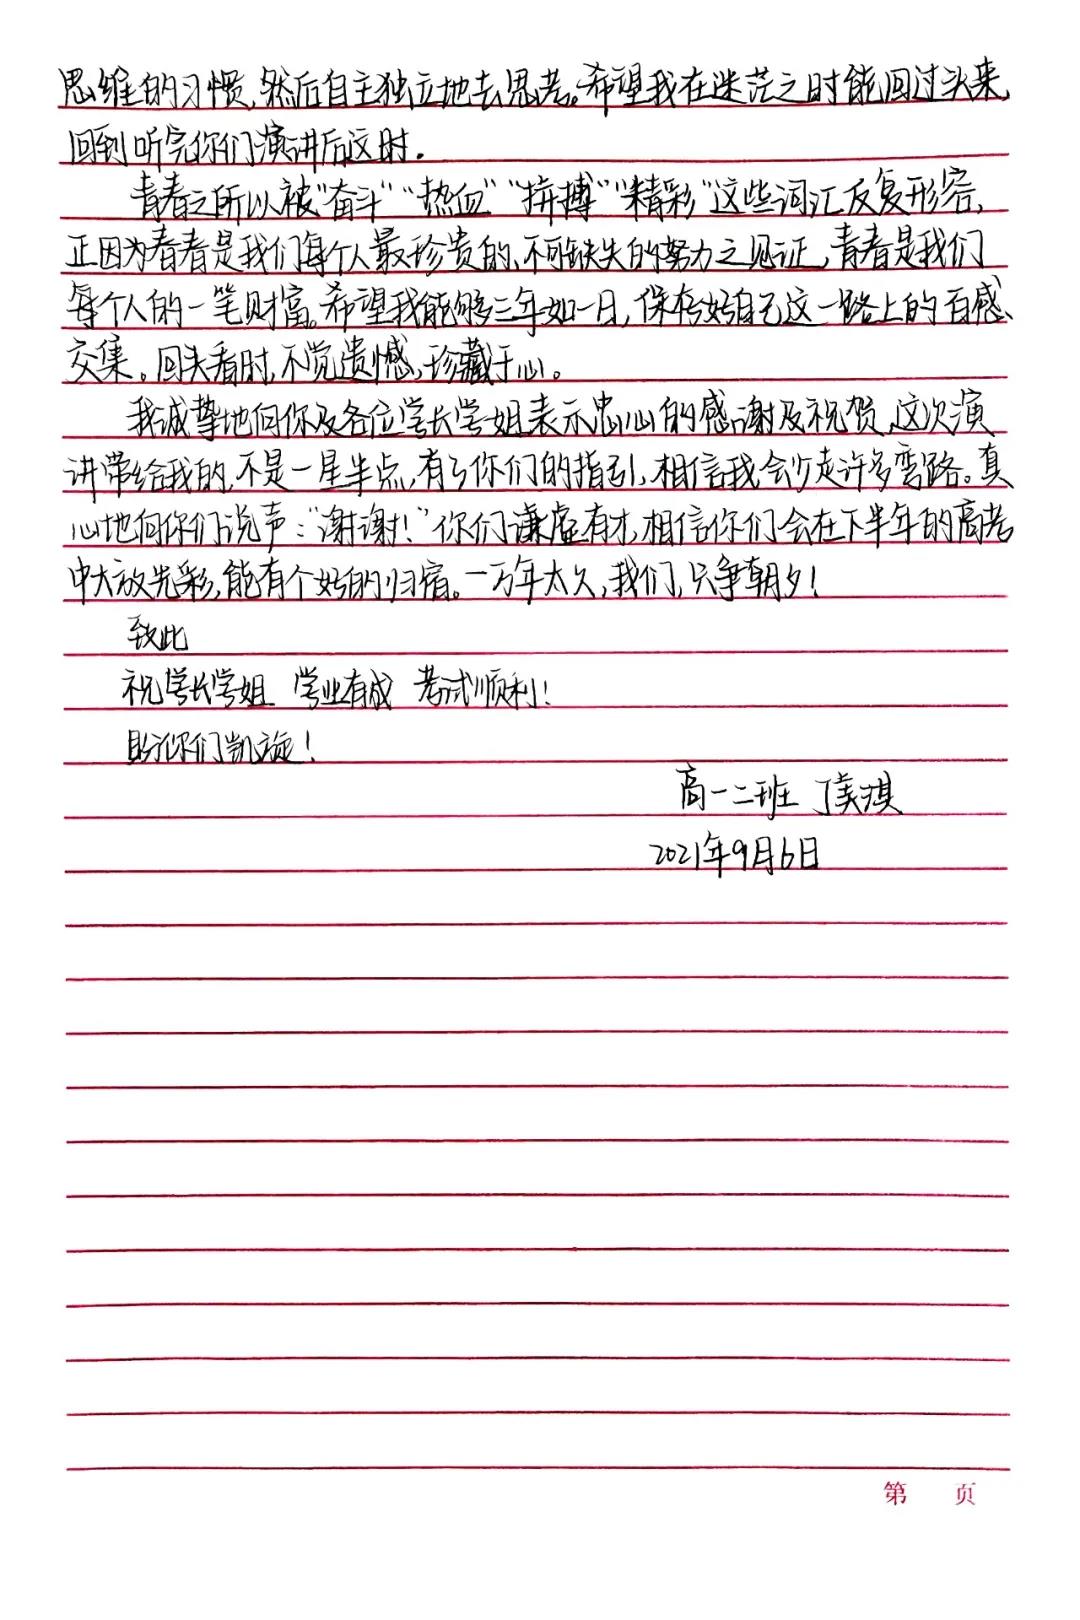 思维的习惯,然后自主独立地去思考。希望我在迷茫之时能回过头来,
回到听完你们演讲后这时.
青春之所以被“奋斗”“热血”“拼搏”“精彩”这些词汇反复形容,
正因为青春是我们每个人最珍贵的、不可缺失的努力之见证,青春是我们
每个人的一笔财富。希望我能够三年如一日,保存好自己这一路上的百感
交集。回头看时,不觉遗憾,珍藏于心。
我诚挚地向你及各位学长学姐表示忠心的感谢及祝贺,这次演
讲带给我的,不是一星半点,有了你们的指引,相信我会少走许多弯路。真
心地向你们说声:“谢谢!”你们谦虚有才,相信你们会在下半年的高考
中大放光彩,能有个好的归宿。一万年太久,我们,只争朝夕!
致此
祝学长学姐 学业有成 考试顺利!
盼你们凯旋!
高一二班 丁美淇
2021年9月6日
第 页